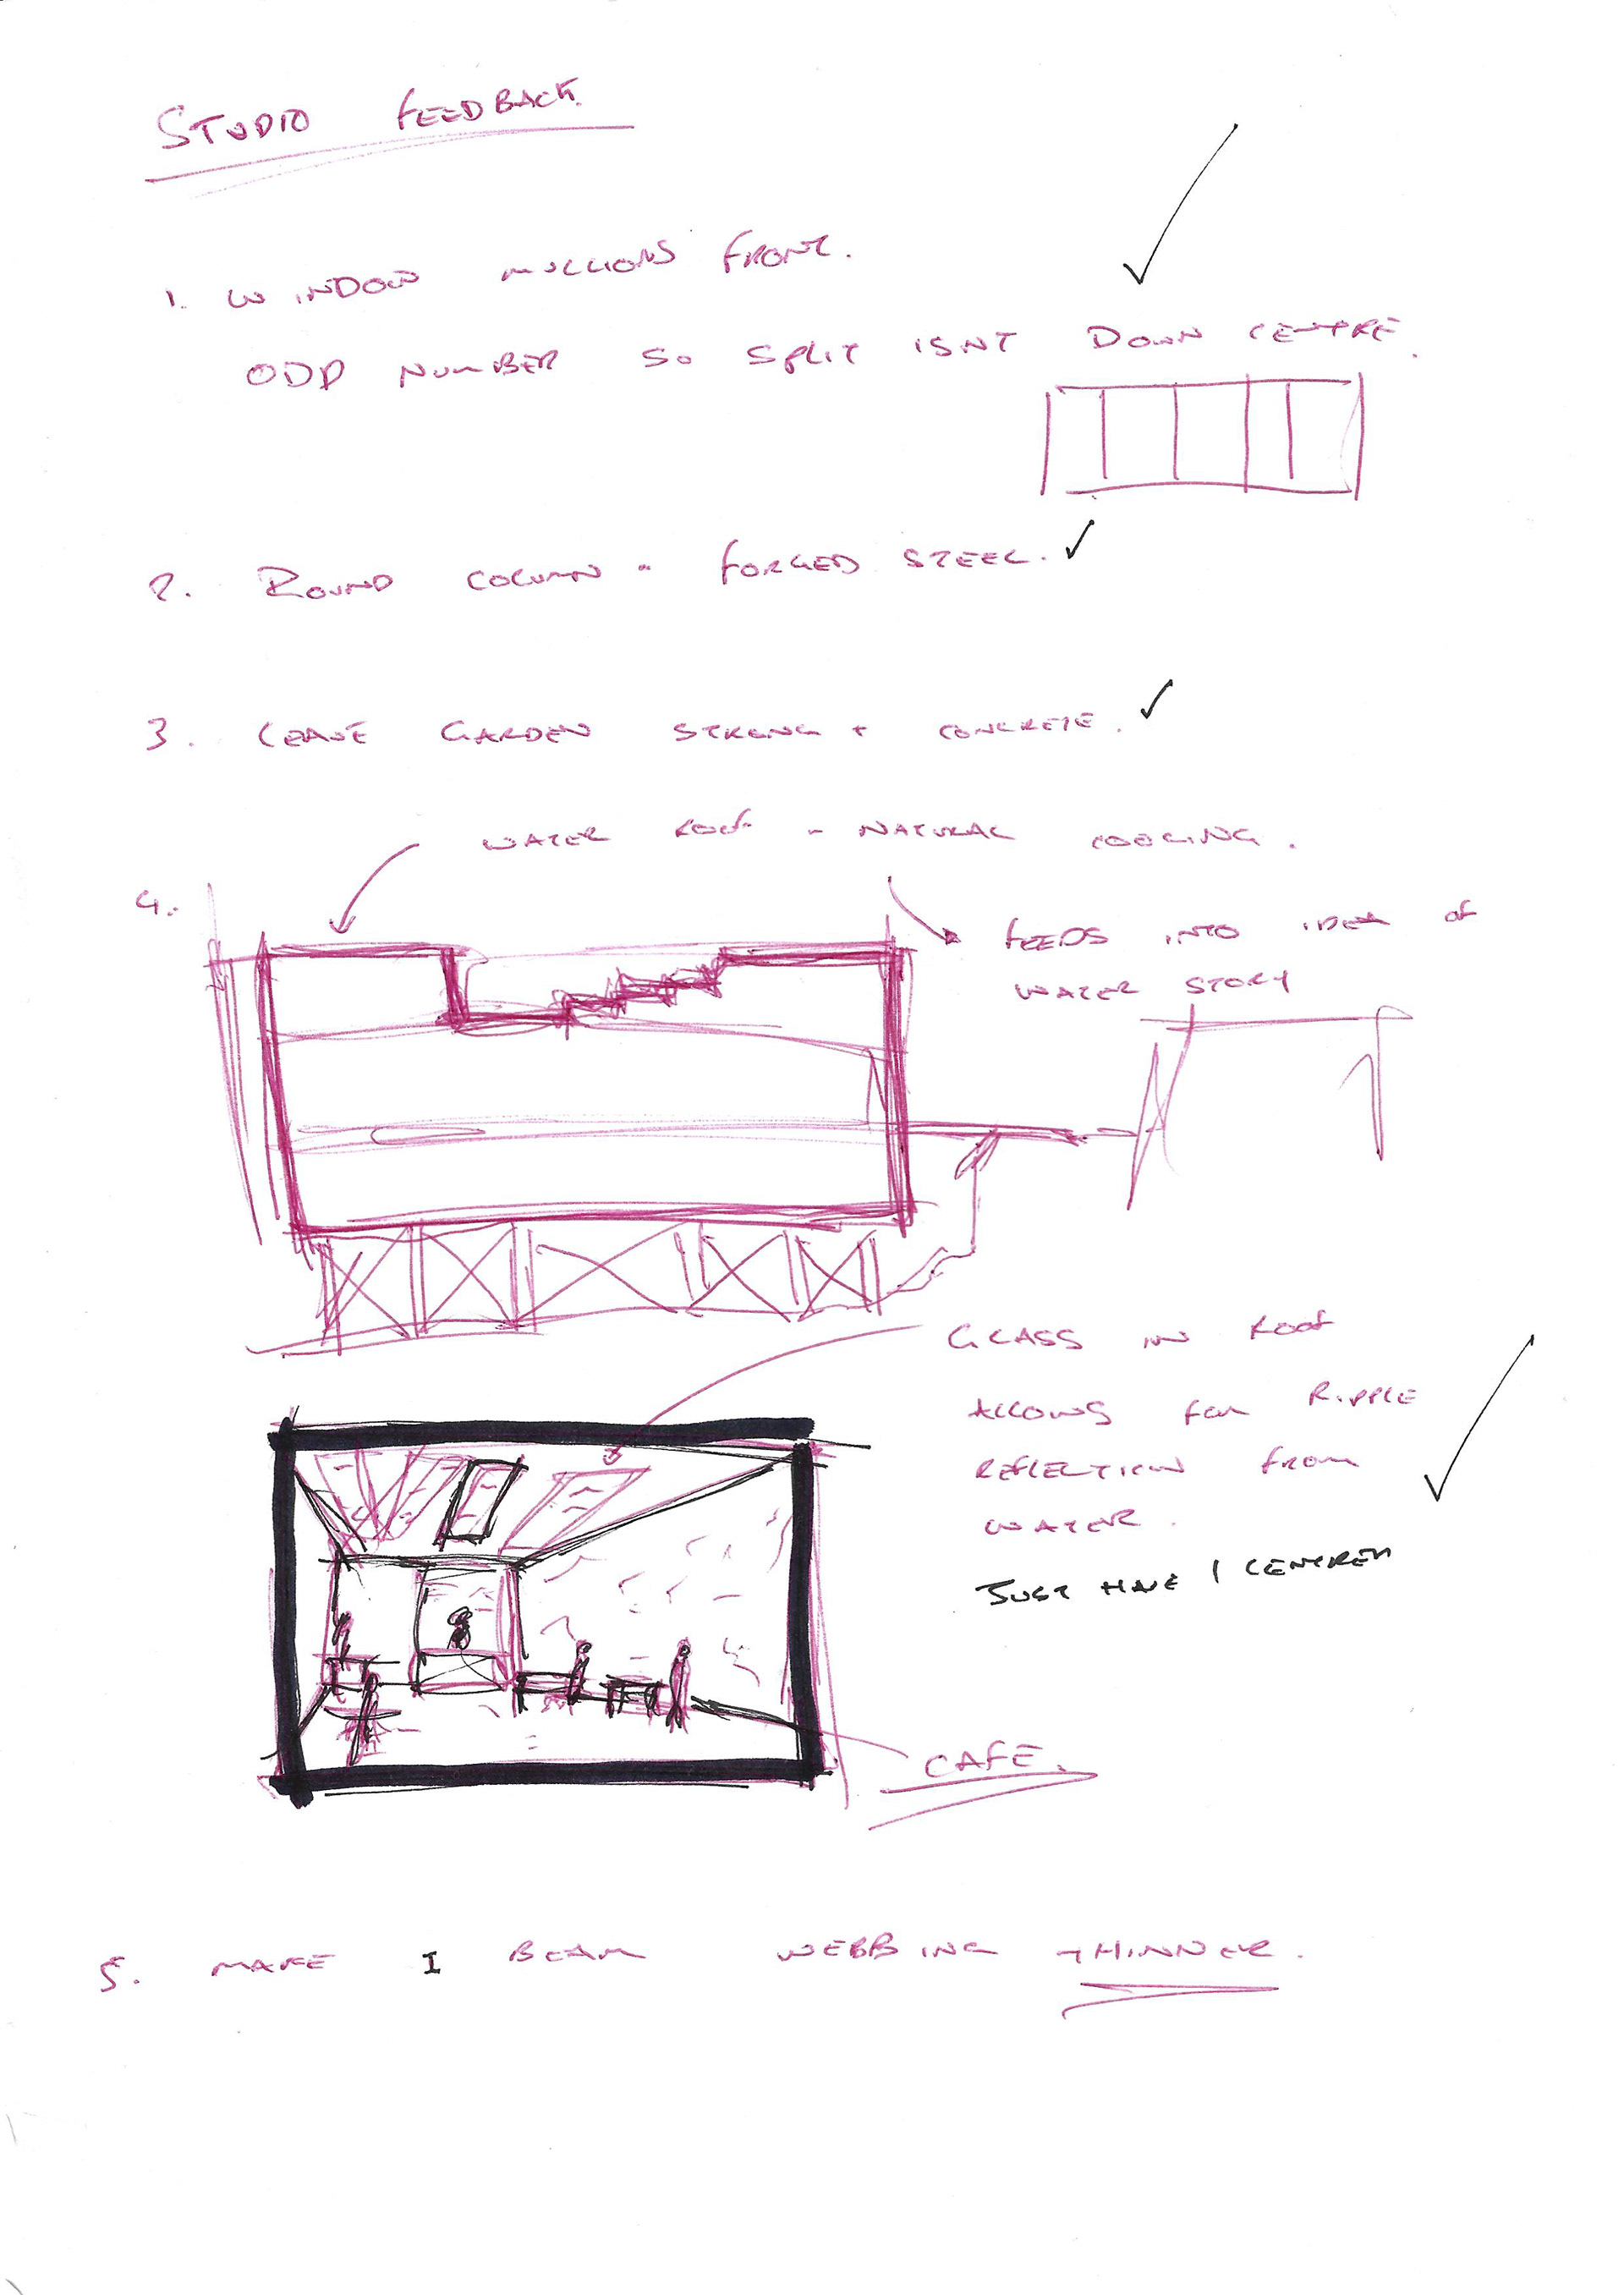 STUDIO FEEDBACK.
1. WINDOW MULLIONS FRONT.
ODD NUMBER SO SPLIT ISNT DOWN CENTRE.
2. ROUND COLUMN - FORGED STEEL.
3. LEAVE GARDEN STRONG + CONCRETE.
WATER ROOF - NATURAL COOLING.
4.
FEEDS INTO IDEA OF
WATER STORY
GLASS IN ROOF
ALLOWS FOR RIPPLE
REFLECTION FROM
WATER.
JUST HAVE 1 CENTRED
CAFE.
5. MAKE I BEAM WEBBING THINNER.